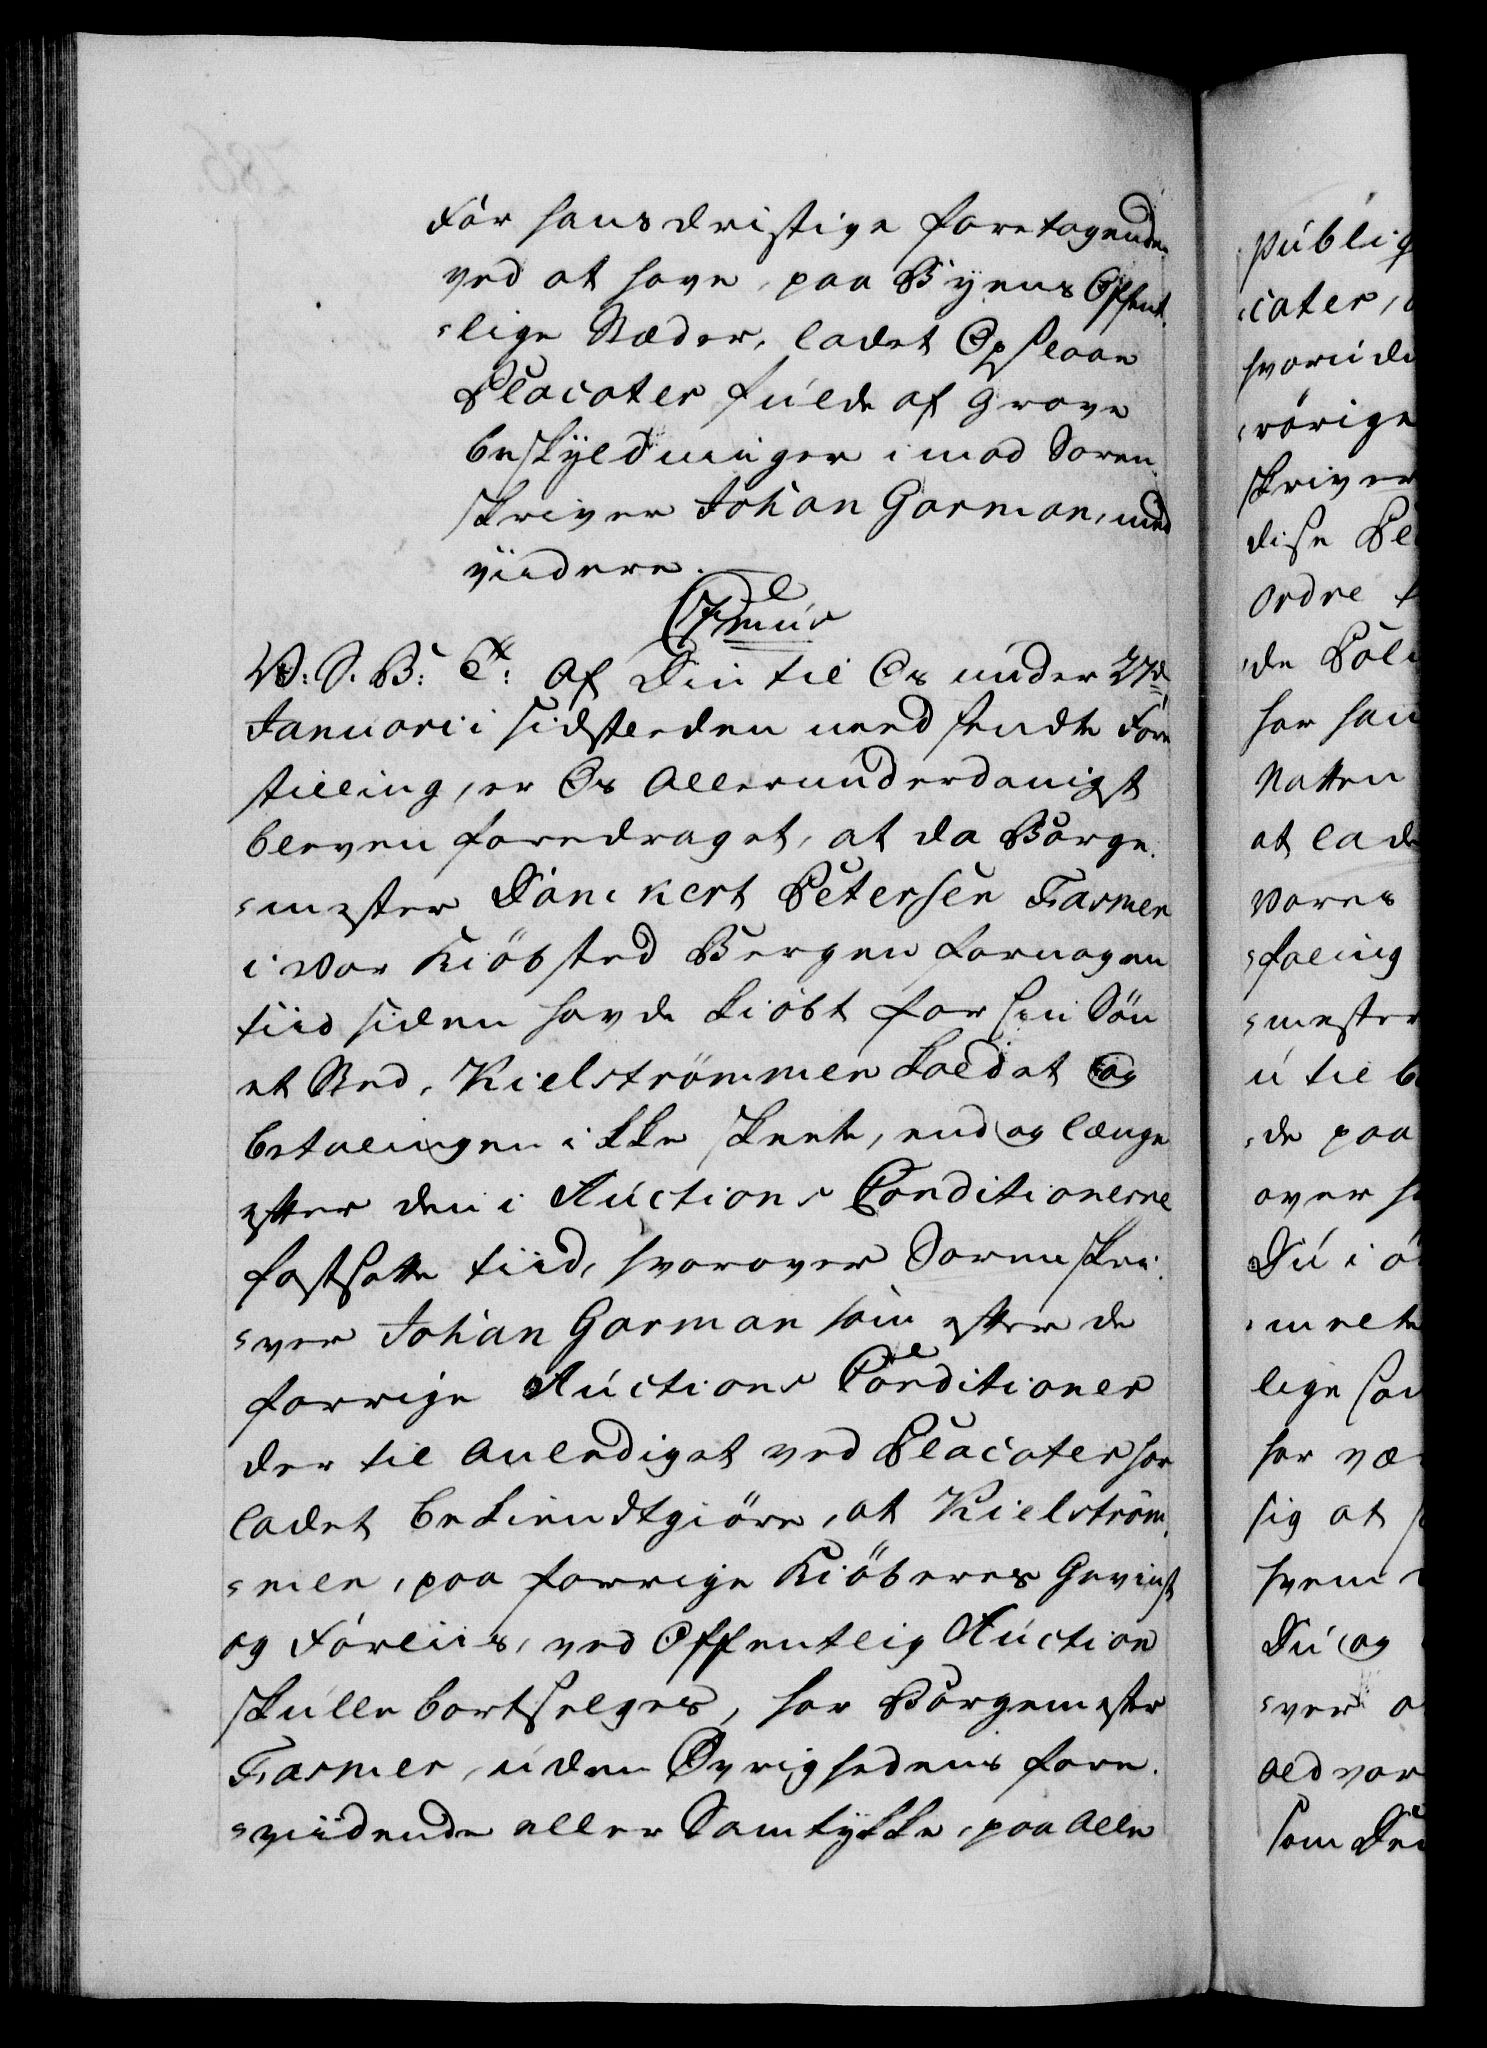 For hans dristige foretagende
ved at have, paa Byens Offent-
-lige Stæder, ladet Opslaae
Placater fulde af grove
beskyldninger imod Soren-
skriver Johan Garman, med
viidere.
C 7mus
V. S. B: Ct: Af Din til Os under 27de
Januarii sidstleden need sendte Fore
stilling, er Os Allerunderdanigst
bleven foredraget, at da Borge-
-mester Danckert Petersen Fasmer
i Vor Kiöbsted Bergen for nogen
tiid siden havde kiöbt for sin Sön
et Sted, Kielströmmen kaldet og
betalingen ikke skeete, end og længe
efter den i Auctions Conditionerne
fastsatte tiid, hvorover Sorenskri-
-ver Johan Garman som efter de
forrige Auctions Conditioner
der til Anlediget ved Placater har
ladet bekiendtgiöre, at Kielström-
-men, paa forrige Kiöberes Gevinst
og Forliis, ved Offentlig Auction
skulle bortselges, har Borgemester
Fasmer, uden Øvrighedens fore-
-viidende eller Samtykke, paa Alle
publiq
-cater,
hvorudi
-rörige
skriver
disse Pl
Ordre
-de Poli
har han
Natten
at lade
Vores
-faling
-mester
u til b
-de paa
over h
Du i ö
-melte
lige so
har væ
sig at
hvem
Du og
-ver
all vor
som De